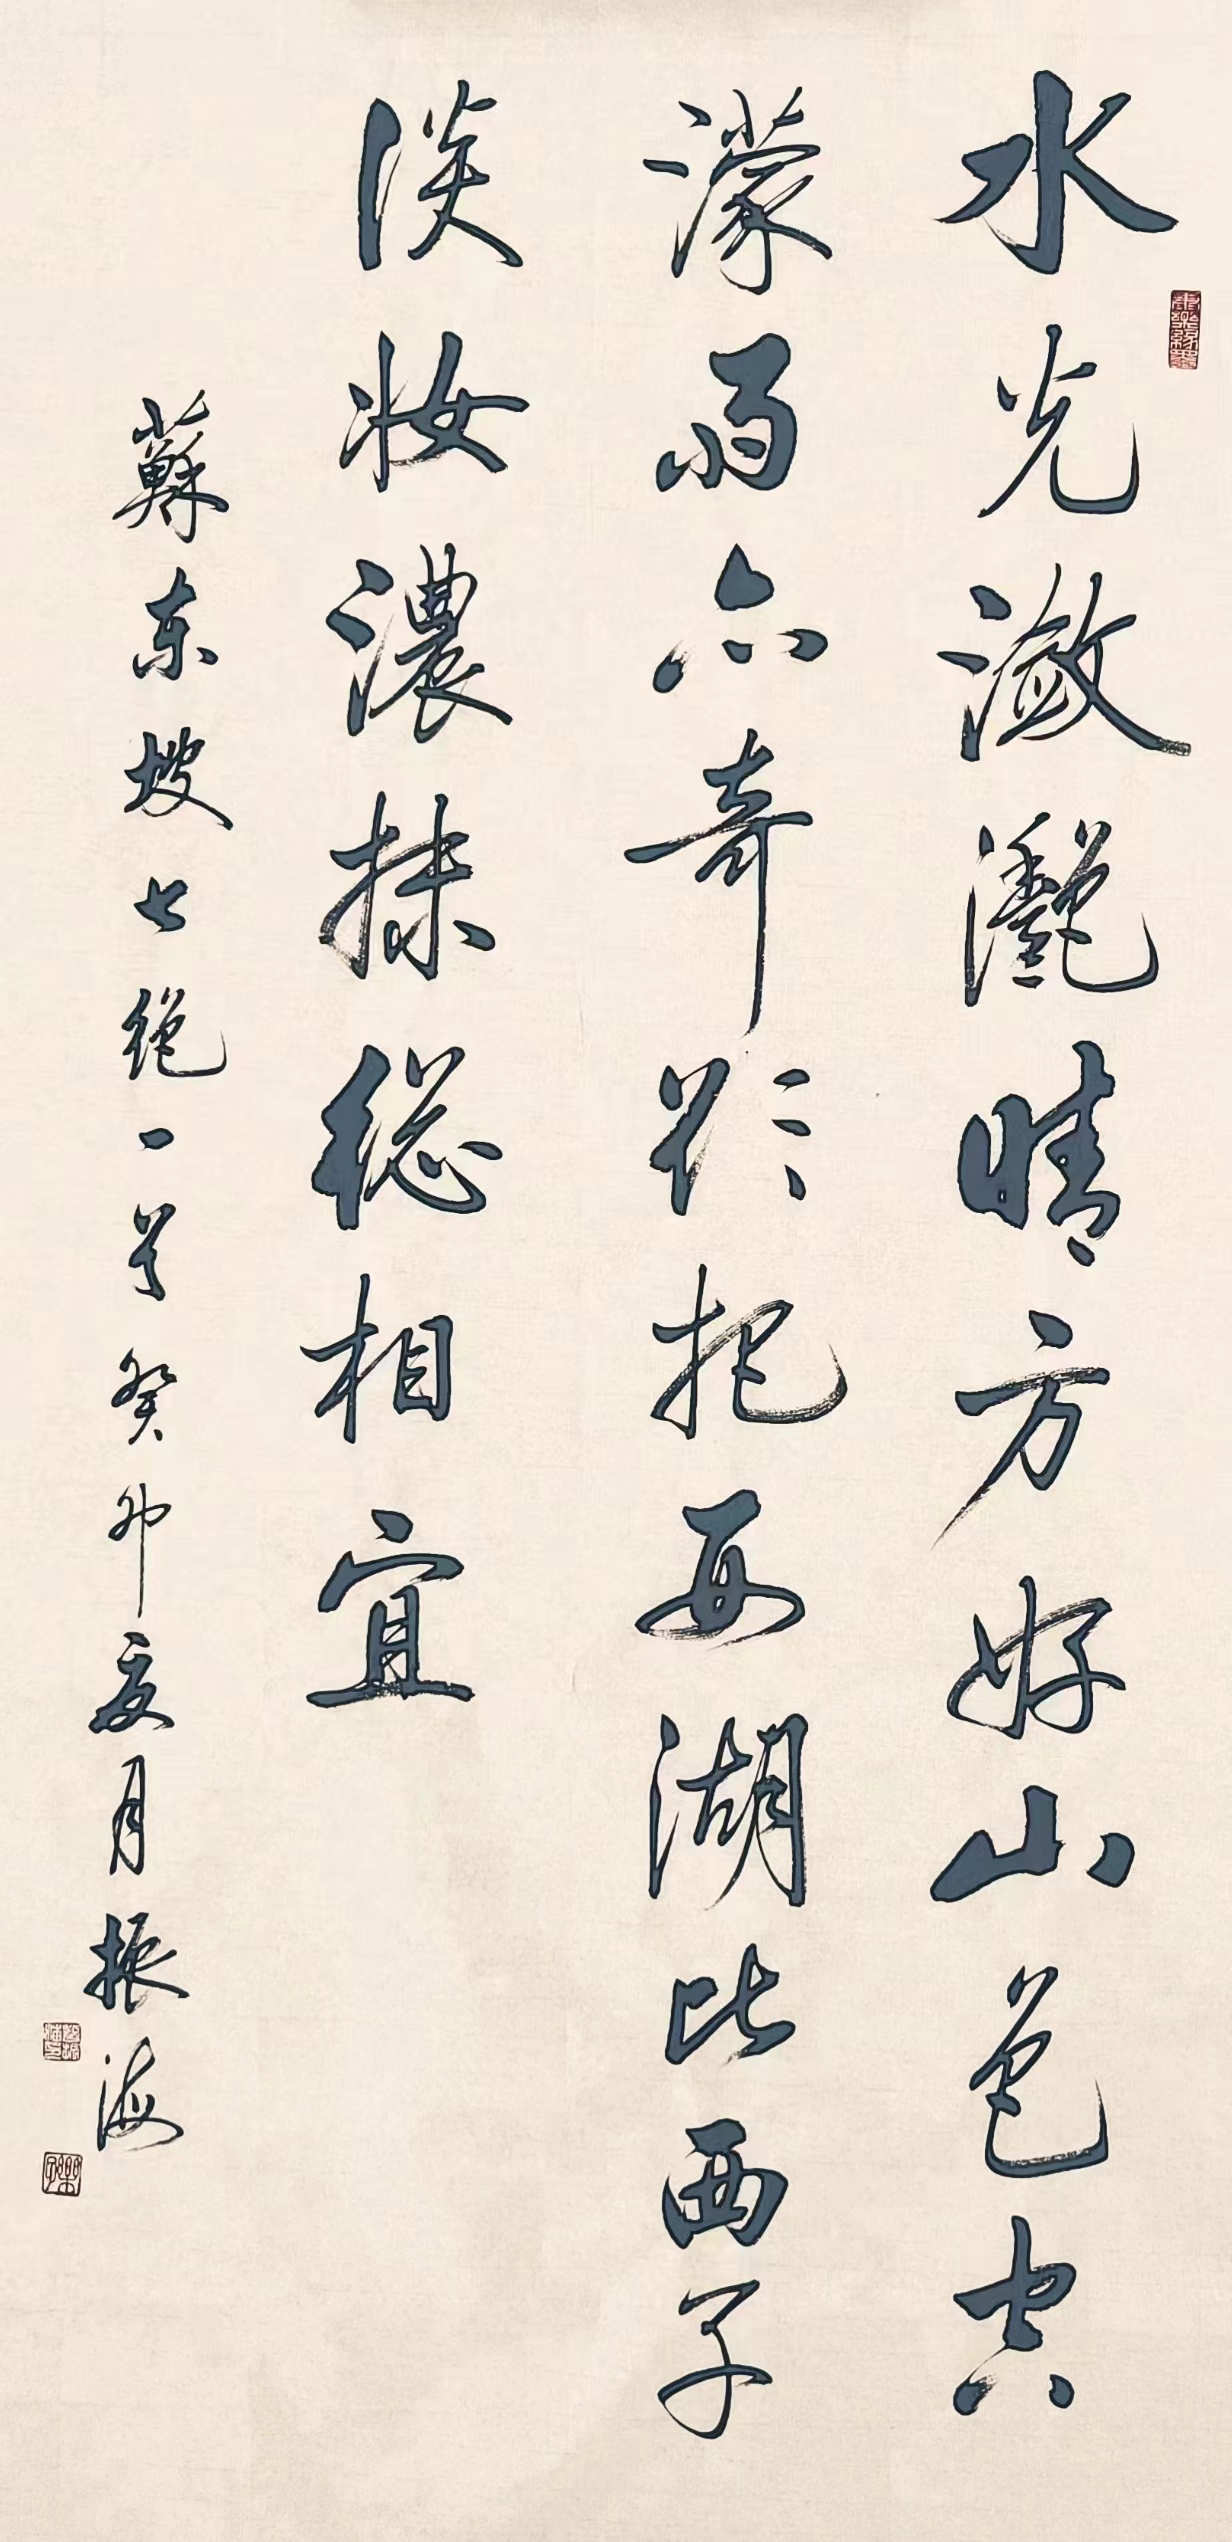 水光潋灧晴方好山色空
濛雨亦奇欲把西湖比西子
淡妆濃抹総相宜
蘇东坡七绝一首癸卯夏月振海